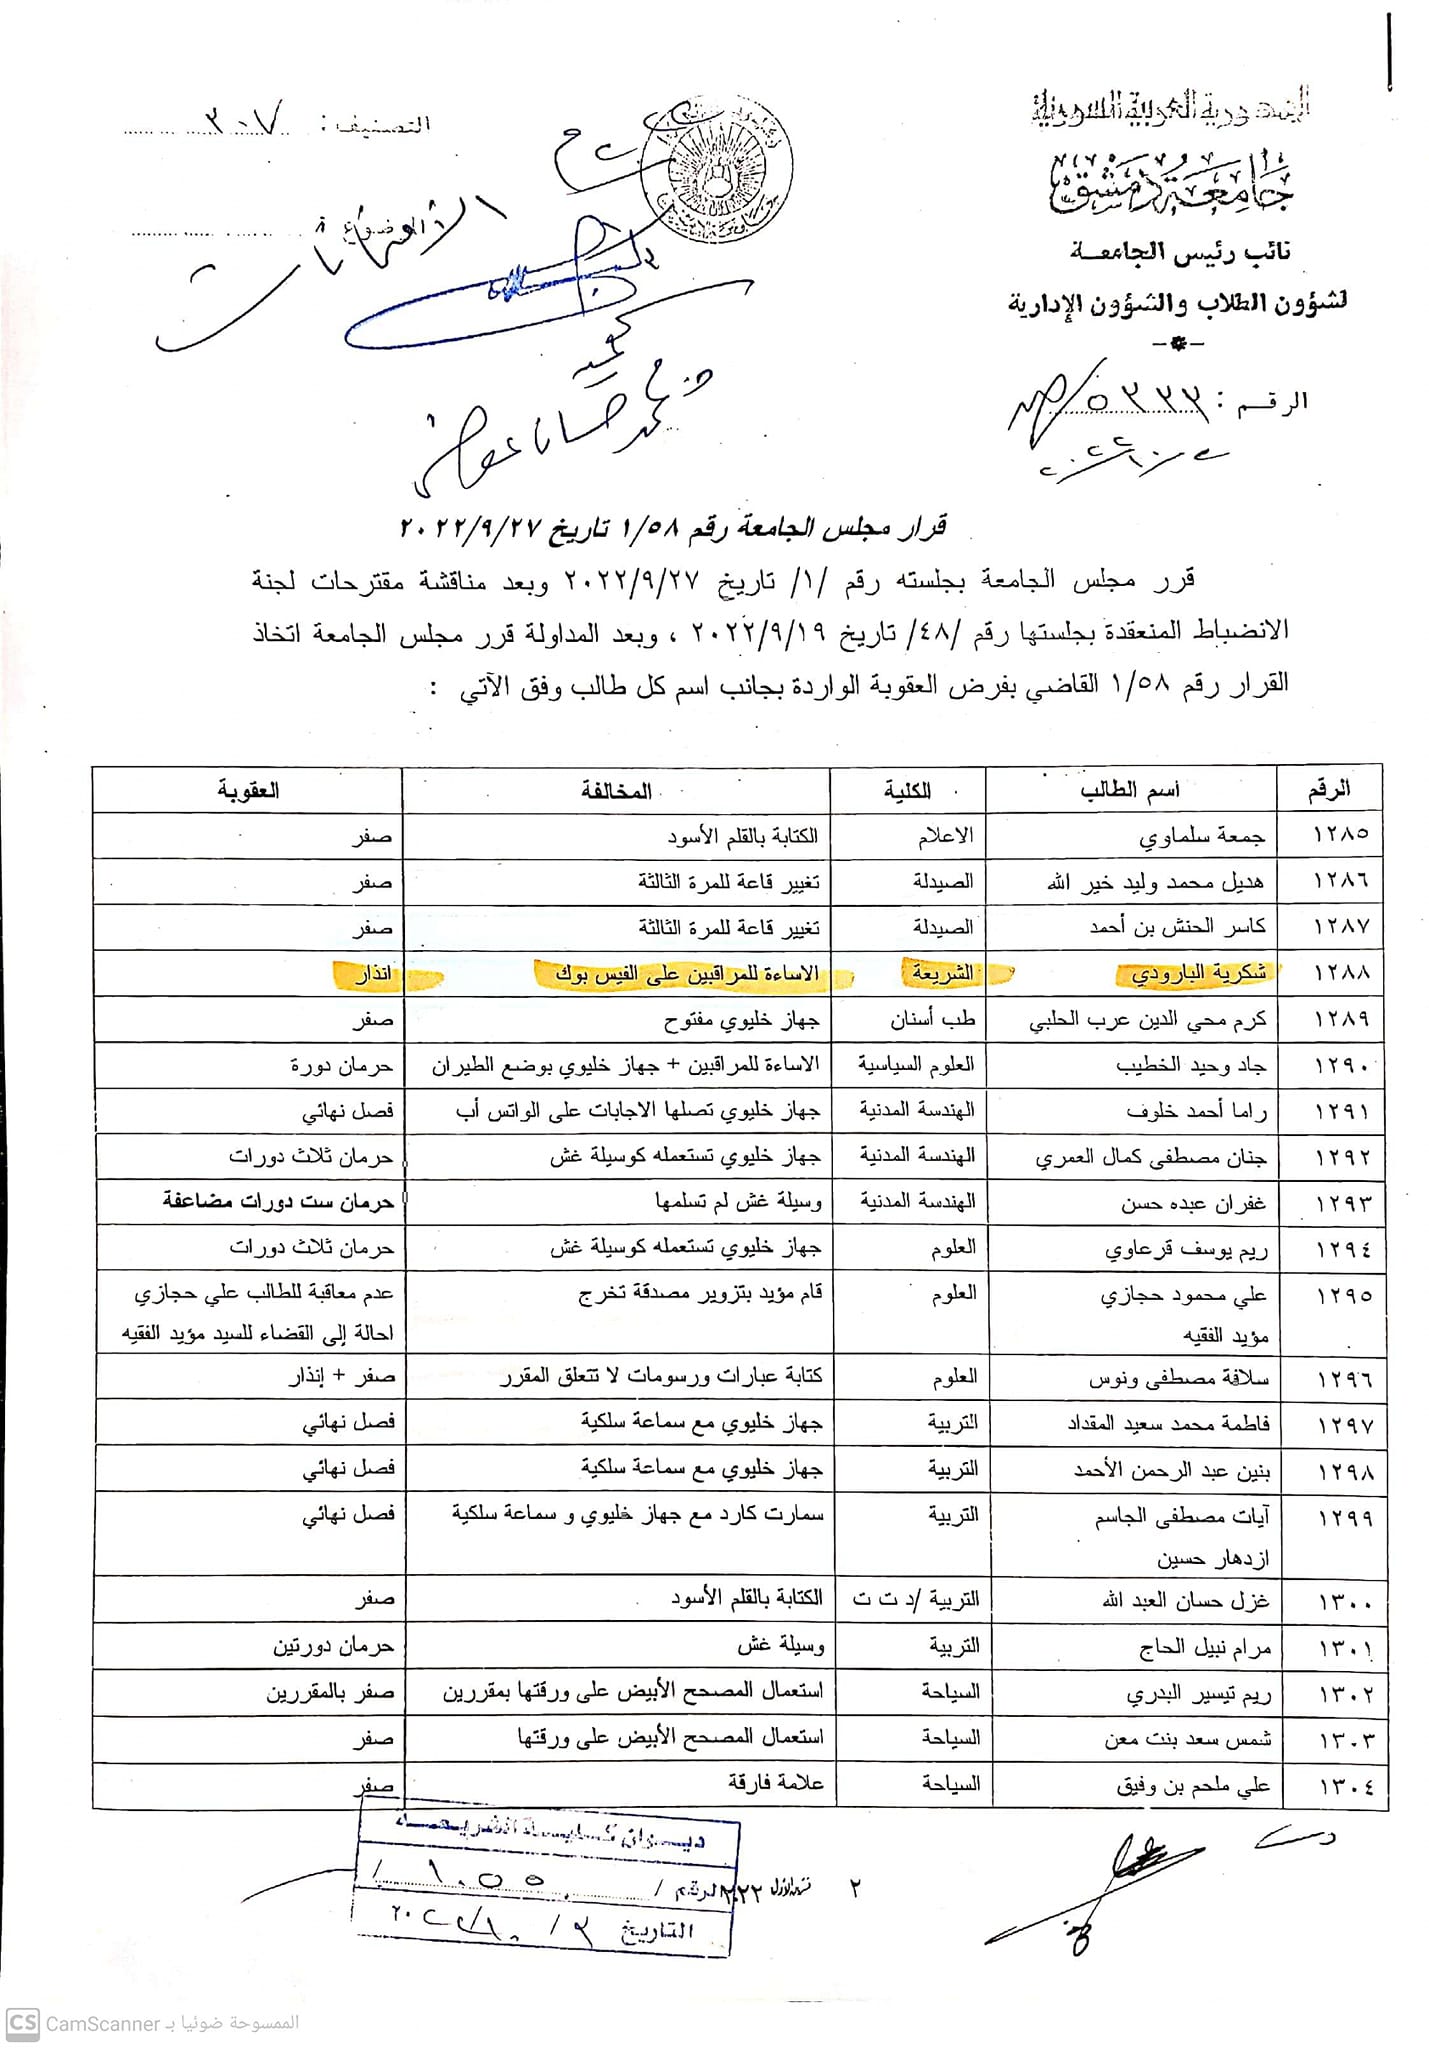 الجمهورية العربية السورية
جامعة دمشق
نائب رئيس الجامعة
لشؤون الطلاب والشؤون الإدارية
الرقم : ٥٣٣٣
التصنيف : ٣٠٧
الامتحانات
قرار مجلس الجامعة رقم ١/٥٨ تاريخ ٢٠٢٢/٩/٢٧
قرر مجلس الجامعة بجلسته رقم /١/ تاريخ ٢٠٢٢/٩/٢٧ وبعد مناقشة مقترحات لجنة
الانضباط المنعقدة بجلستها رقم /٤٨/ تاريخ ٢٠٢٢/٩/١٩ ، وبعد المداولة قرر مجلس الجامعة اتخاذ
القرار رقم ١/٥٨ القاضي بفرض العقوبة الواردة بجانب اسم كل طالب وفق الآتي :
الرقم اسم الطالب الكلية المخالفة العقوبة
١٢٨٥ جمعة سلماوي الاعلام الكتابة بالقلم الأسود صفر
١٢٨٦ هديل محمد وليد خير الله الصيدلة تغيير قاعة للمرة الثالثة صفر
١٢٨٧ كاسر الحنش بن أحمد الصيدلة تغيير قاعة للمرة الثالثة صفر
١٢٨٨ شكرية البارودي الشريعة الاساءة للمراقبين على الفيس بوك انذار
١٢٨٩ كرم محي الدين عرب الحلبي طب أسنان جهاز خليوي مفتوح صفر
١٢٩٠ جاد وحيد الخطيب العلوم السياسية الاساءة للمراقبين + جهاز خليوي بوضع الطيران حرمان دورة
١٢٩١ راما أحمد خلوف الهندسة المدنية جهاز خليوي تصلها الاجابات على الواتس أب فصل نهائي
١٢٩٢ جنان مصطفى كمال العمري الهندسة المدنية جهاز خليوي تستعمله كوسيلة غش حرمان ثلاث دورات
١٢٩٣ غفران عبده حسن الهندسة المدنية وسيلة غش لم تسلمها حرمان ست دورات مضاعفة
١٢٩٤ ريم يوسف قرعاوي العلوم جهاز خليوي تستعمله كوسيلة غش حرمان ثلاث دورات
١٢٩٥ علي محمود حجازي العلوم قام مؤيد بتزوير مصدقة تخرج عدم معاقبة للطالب علي حجازي
مؤيد الفقيه احالة إلى القضاء للسيد مؤيد الفقيه
١٢٩٦ سلافة مصطفى ونوس العلوم كتابة عبارات ورسومات لا تتعلق المقرر صفر + إنذار
١٢٩٧ فاطمة محمد سعيد المقداد التربية جهاز خليوي مع سماعة سلكية فصل نهائي
١٢٩٨ بنين عبد الرحمن الأحمد التربية جهاز خليوي مع سماعة سلكية فصل نهائي
١٢٩٩ آيات مصطفى الجاسم التربية سمارت كارد مع جهاز خليوي و سماعة سلكية فصل نهائي
ازدهار حسين
١٣٠٠ غزل حسان العبد الله التربية /د ت ت الكتابة بالقلم الأسود صفر
١٣٠١ مرام نبيل الحاج التربية وسيلة غش حرمان دورتين
١٣٠٢ ريم تيسير البدري السياحة استعمال المصحح الأبيض على ورقتها بمقررين صفر بالمقررين
١٣٠٣ شمس سعد بنت معن السياحة استعمال المصحح الأبيض على ورقتها صفر
١٣٠٤ علي ملحم بن وفيق السياحة علامة فارقة صفر
ديوان كلية الشريعة
الرقم / ١٠٥٥ /
التاريخ ٣ / ١٠ / ٢٠٢٢
٢ تشرين الأول ٢٠٢٢
CS CamScanner الممسوحة ضوئيا بـ